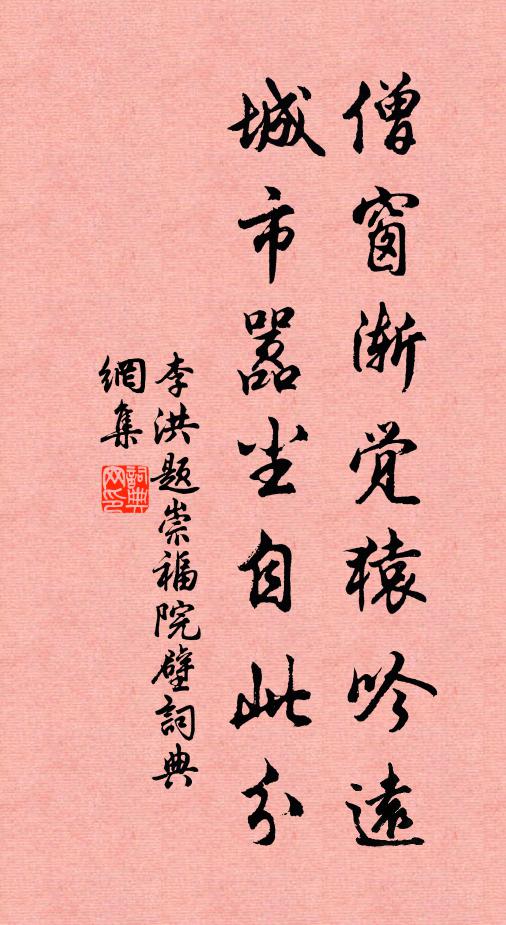 僧窗渐觉猿吟遠
城市嚣尘自此分
李洪题崇福院壁詞典
網集
詞典
网印